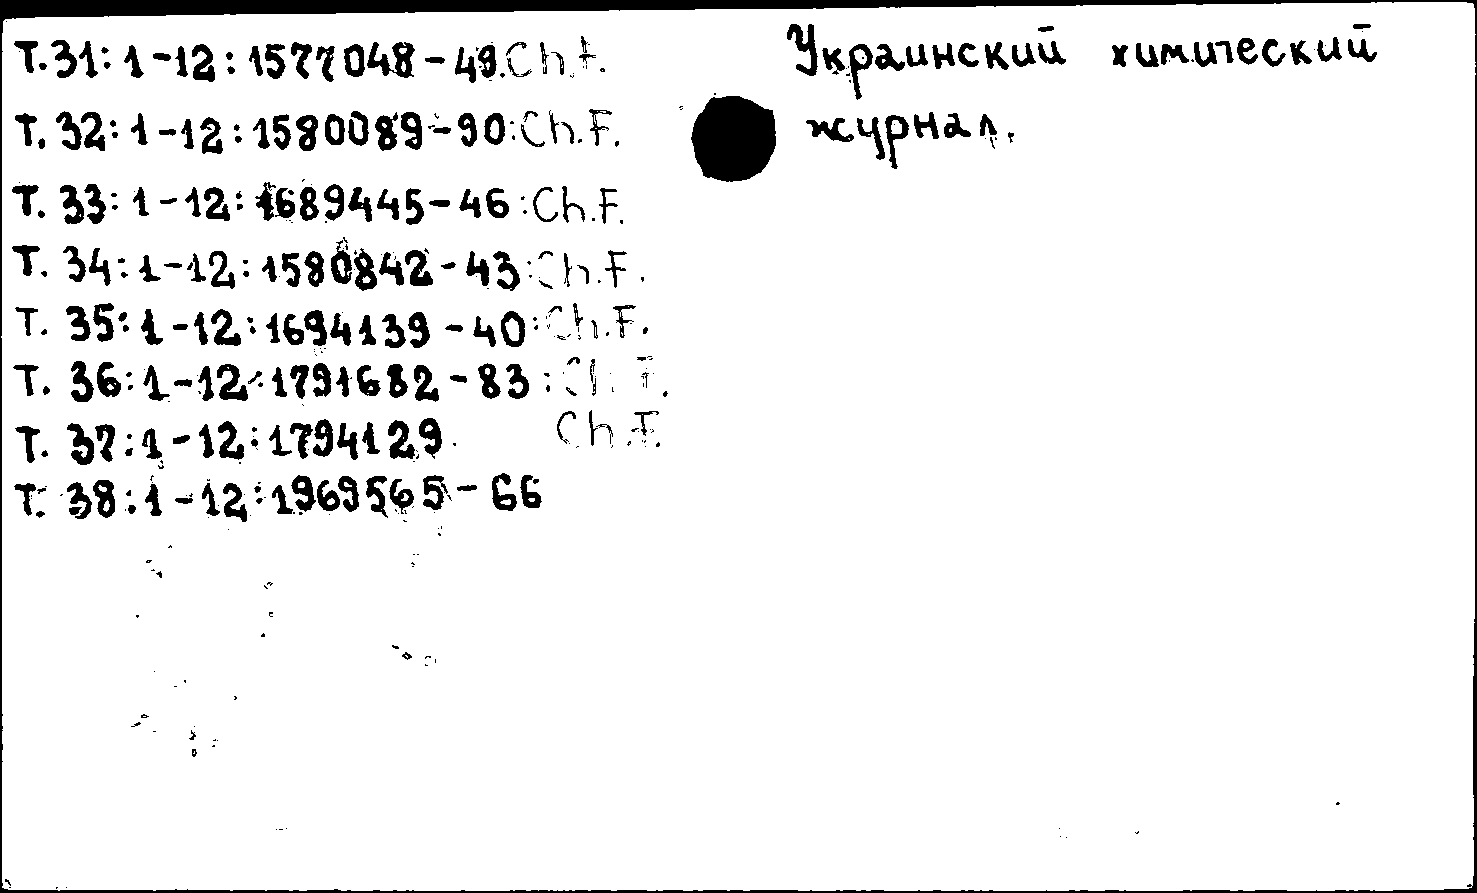 Украинский химический
журнал.
Т. 31: 1-12: 1577048-49. Ch.F.
Т. 32: 1-12: 1580089-90: Ch.F.
Т. 33: 1-12: 1689445-46: Ch.F.
Т. 34: 1-12: 1580842-43: Ch.F.
Т. 35: 1-12: 1694139-40: Ch.F.
Т. 36: 1-12: 1791682-83: Ch.F.
Т. 37: 1-12: 1794129. Ch.F.
Т. 38: 1-12: 1969565-66